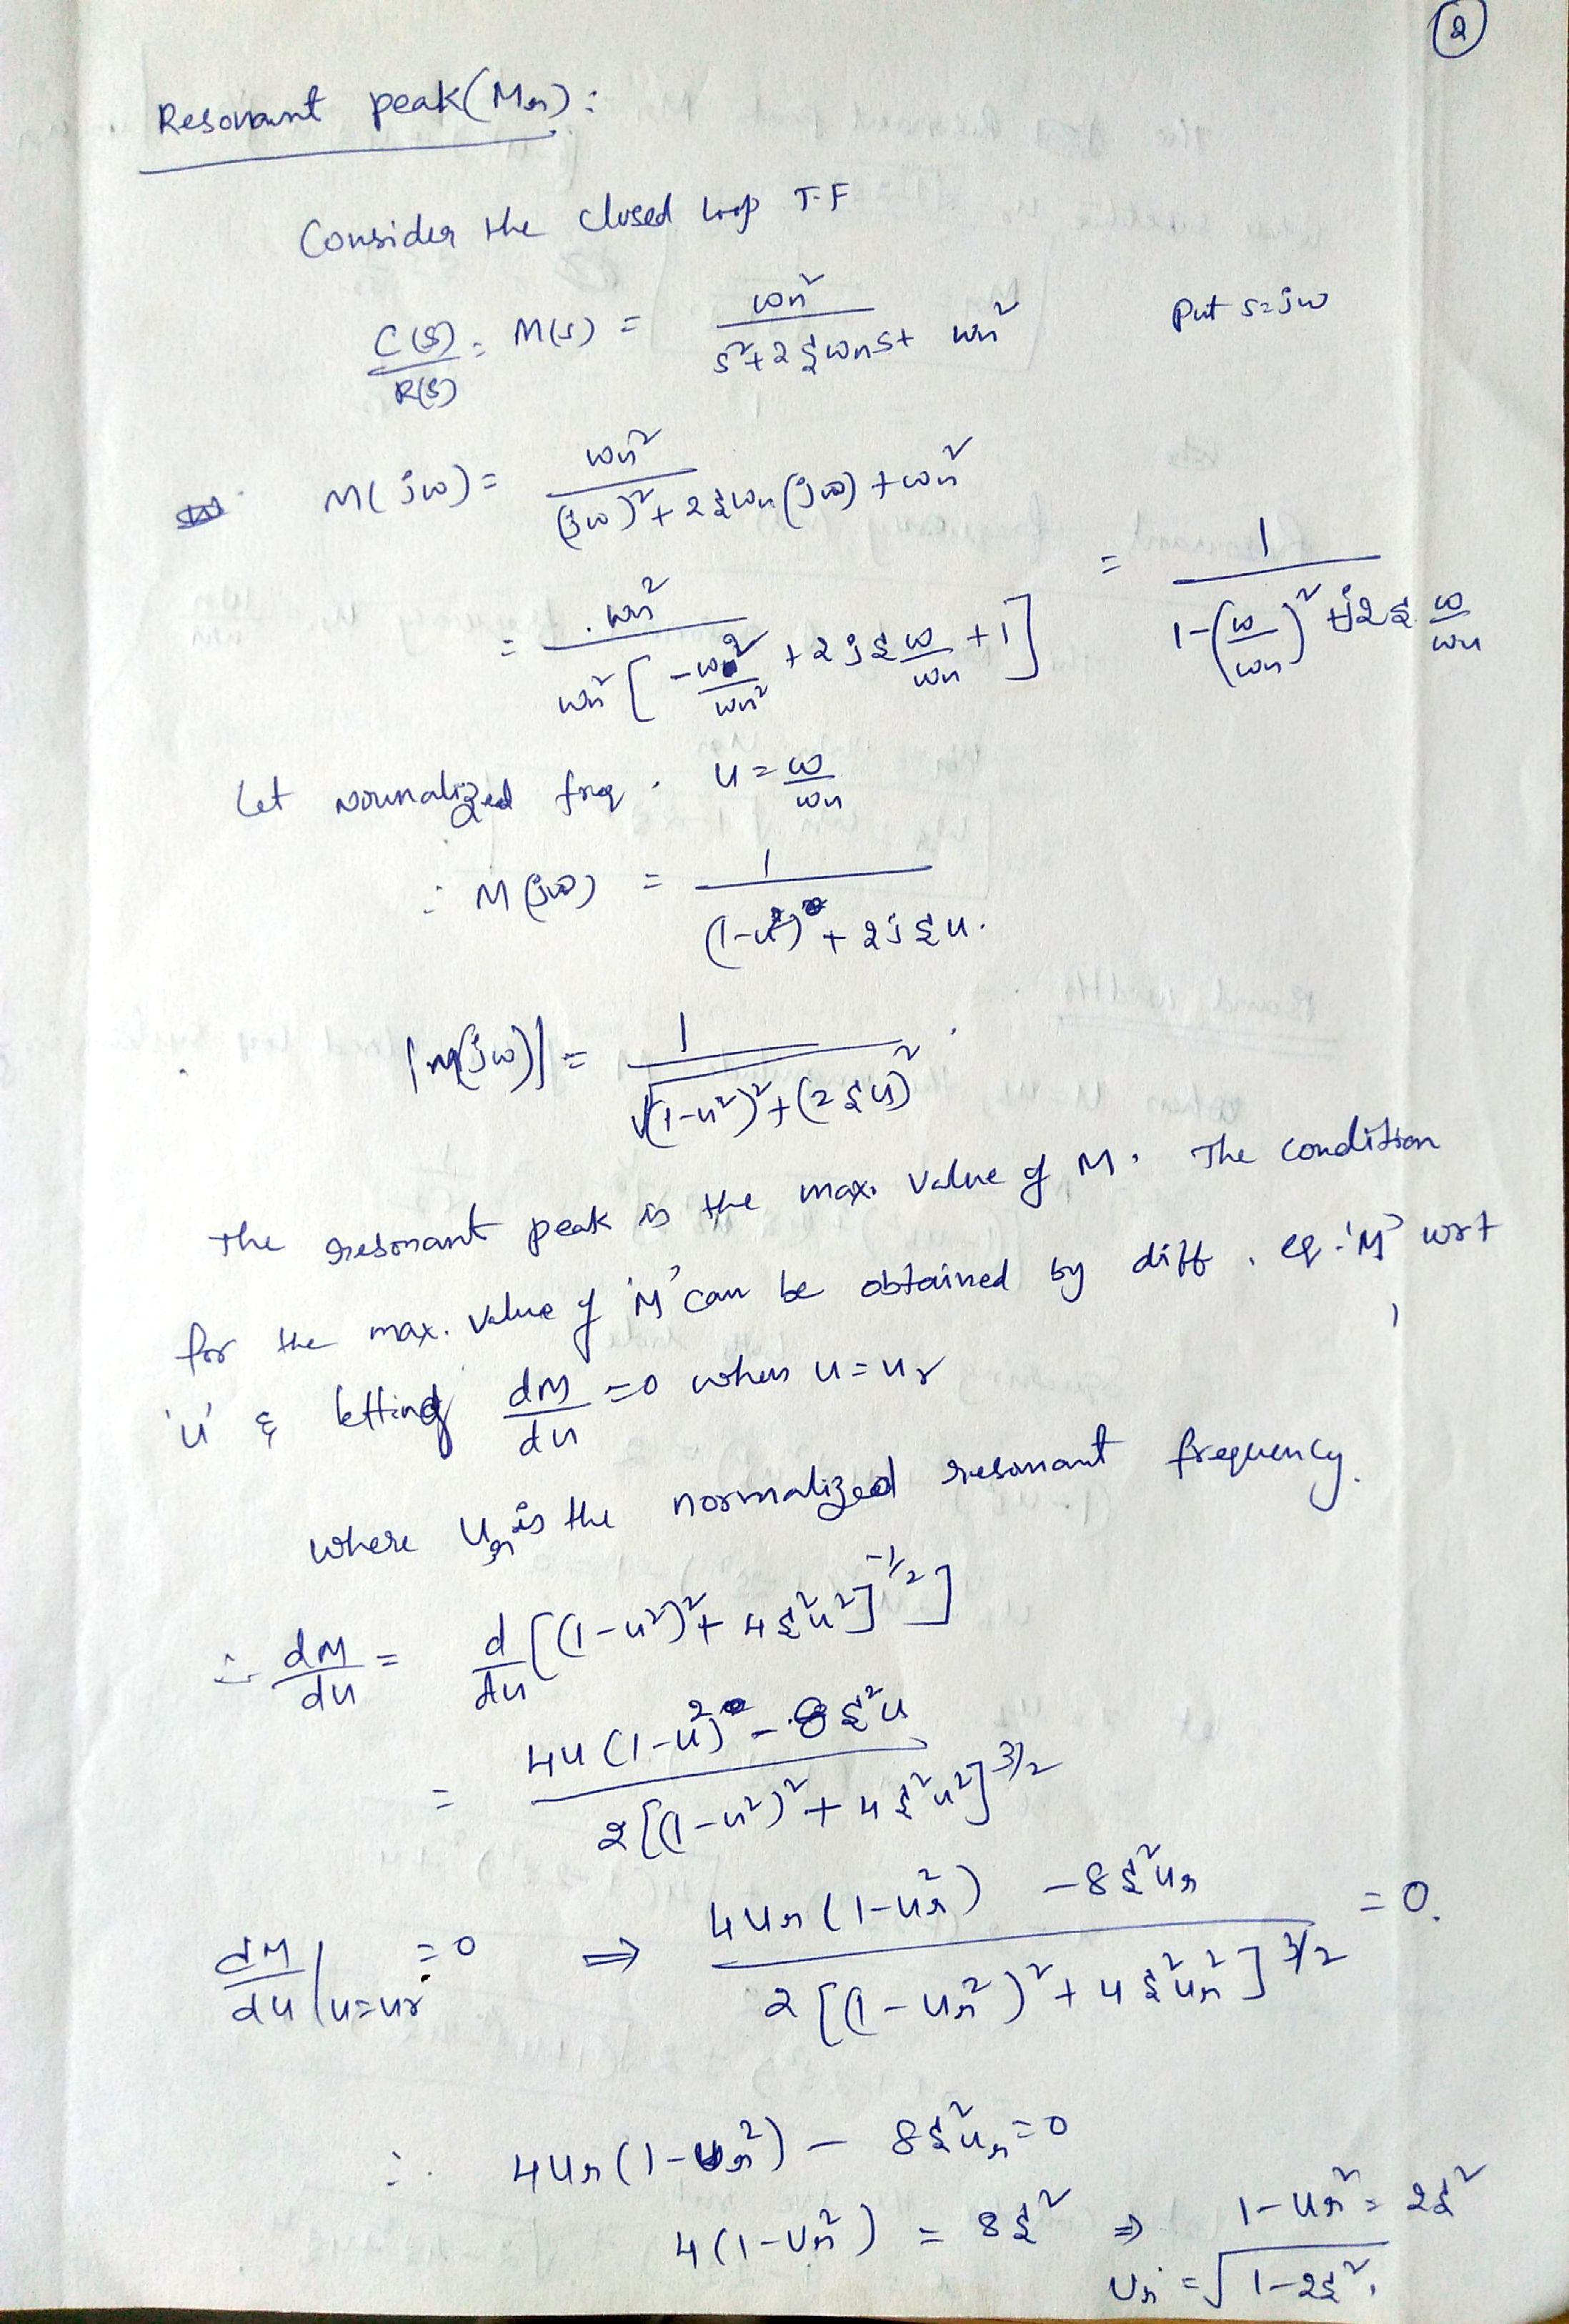 2
Resonant peak (Mr):
Consider the closed loop T.F
C(S)/R(S) = M(s) = ωn²/(s²+2ξωns+ωn²) Put s=jω
M(jω) = ωn²/((jω)²+2ξωn(jω)+ωn²)
= ωn²/(ωn²[-ω²/ωn² + 2jξ ω/ωn + 1]) = 1/(1-(ω/ωn)² + j2ξ ω/ωn)
Let normalized freq. u = ω/ωn
∴ M(jω) = 1/((1-u²) + 2jξu.)
|M(jω)| = 1/√((1-u²)²+(2ξu)²)
The resonant peak is the max. value of M. The condition
for the max. value of 'M' can be obtained by diff. eq. 'M' wrt
'u' & letting dM/du = 0 when u=ur
where ur is the normalized resonant frequency.
∴ dM/du = d/du [(1-u²)²+4ξ²u²]^(-1/2)]
= (4u(1-u²) - 8ξ²u)/(2[(1-u²)²+4ξ²u²]^(3/2))
dM/du|u=ur = 0 ⇒ (4ur(1-ur²) - 8ξ²ur)/(2[(1-ur²)²+4ξ²ur²]^(3/2)) = 0.
∴ 4ur(1-ur²) - 8ξ²ur = 0
4(1-ur²) = 8ξ² ⇒ 1-ur² = 2ξ²
ur = √(1-2ξ²).